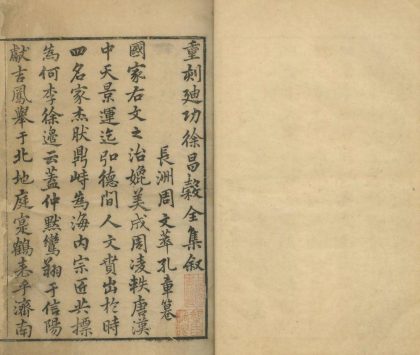 重刻迪功徐昌穀全集叙
長洲周文萃孔章篹
國家右文之治媲美成周凌軼唐漢
中天景運迄弘德間人文賁出於時
四名家杰肰鼎峙為海内宗匠共摽
為何李徐邉云蓋仲默鸞翔于信陽
獻吉鳳舉于北地庭實鶴